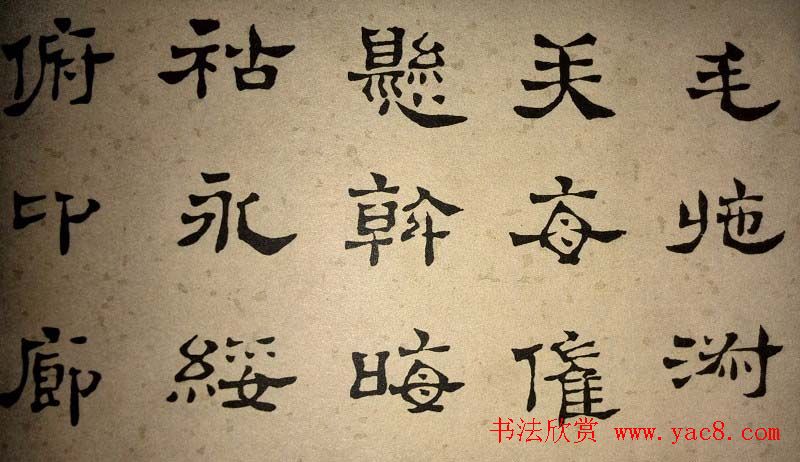 毛施淑
笑每催
懸斡晦
祜永綏
俯卬廊
书法欣赏 www.yac8.com